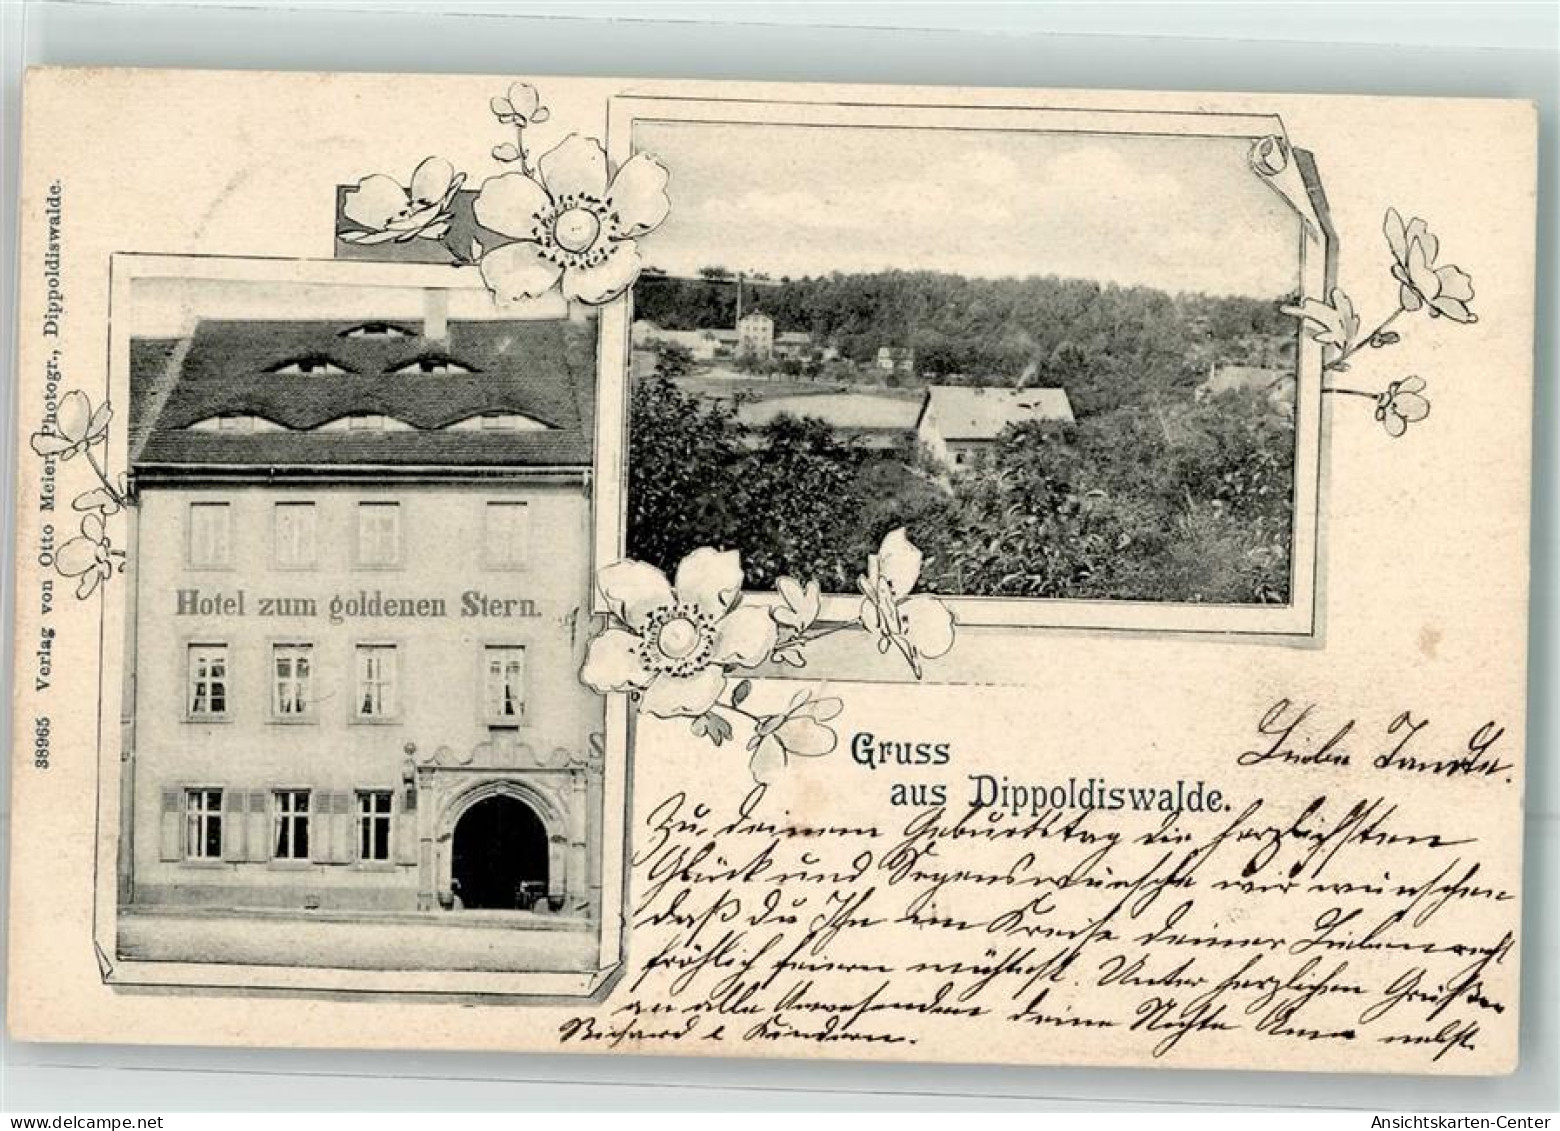 38965 Verlag von Otto Meier, Photogr., Dippoldiswalde.
Hotel zum goldenen Stern.
S
Gruss
aus Dippoldiswalde.
Liebe Tante.
Zu deinem Geburtstag die herzlichsten
Glück und Segenswünsche wir wünschen
daß du Ihn im Kreise deiner Lieben recht
fröhlich feiern möchtest. Unter herzlichen Grüßen
an alle Anwesenden deine Nichte Anna nebst
Richard & Kindern.
delcampe.net
Ansichtskarten-Center